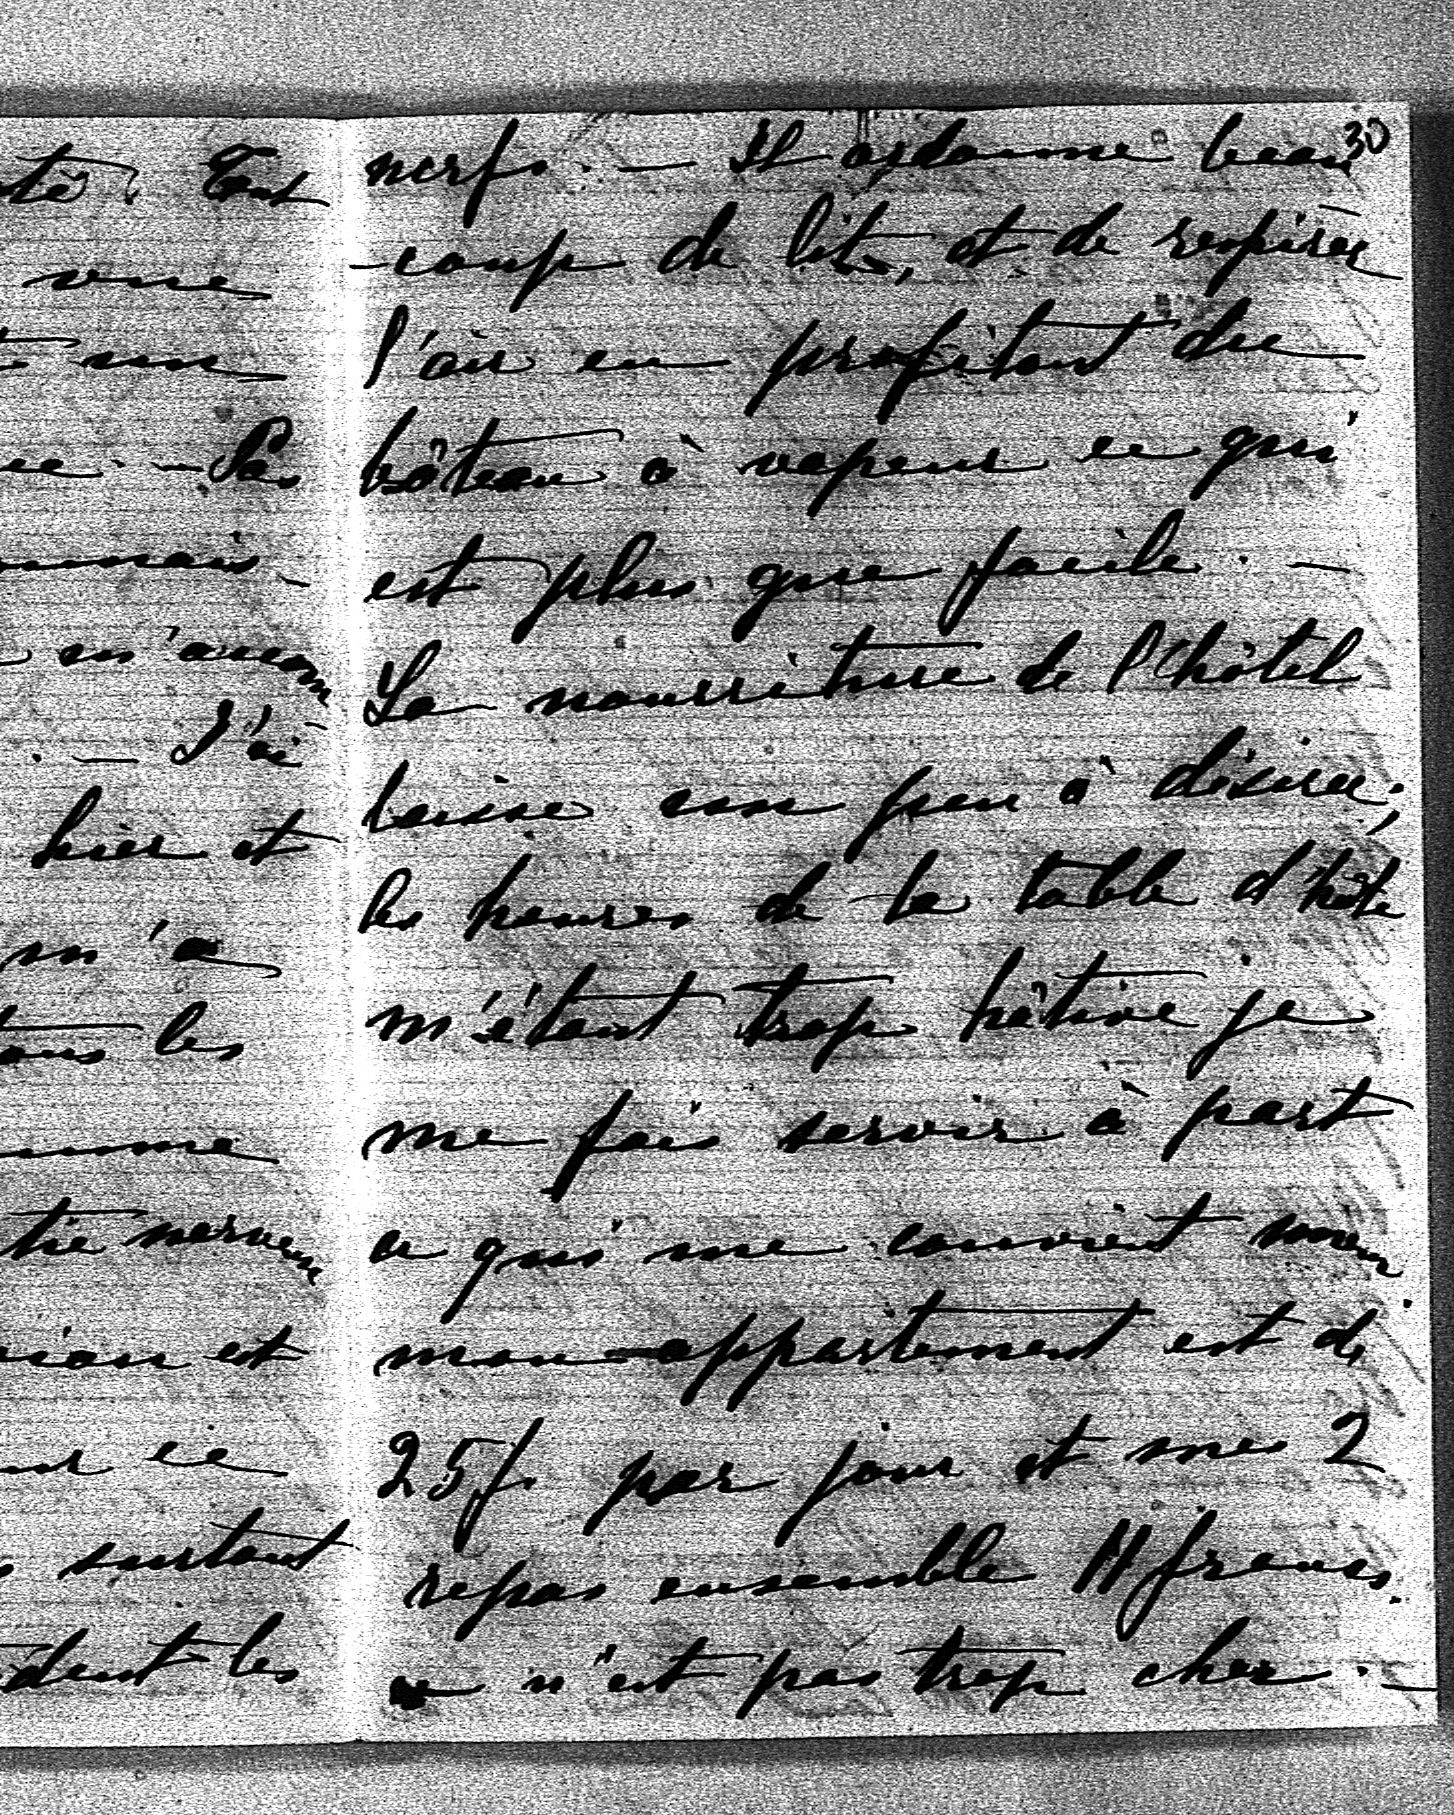 té. Tout
vue
un
Pas
mais
m'avan
. — J'ai
hier et
m'a
tous les
tié nerveu
et
ce
surtout
dent les
30
nerfs. — Il ordonne beau
-coup de lit, et de respirer
l'air en profitant du
bâteau à vapeur ce qui
est plus que facile. —
La nourriture de l'hôtel
laisse un peu à désirer;
les heures de la table d'hôte
m'étant trop hâtive je
me fais servir à part
ce qui me convient mieux
mon appartement est de
25f. par jour et mes 2
repas ensemble 11 francs.
ce n'est pas trop cher. —